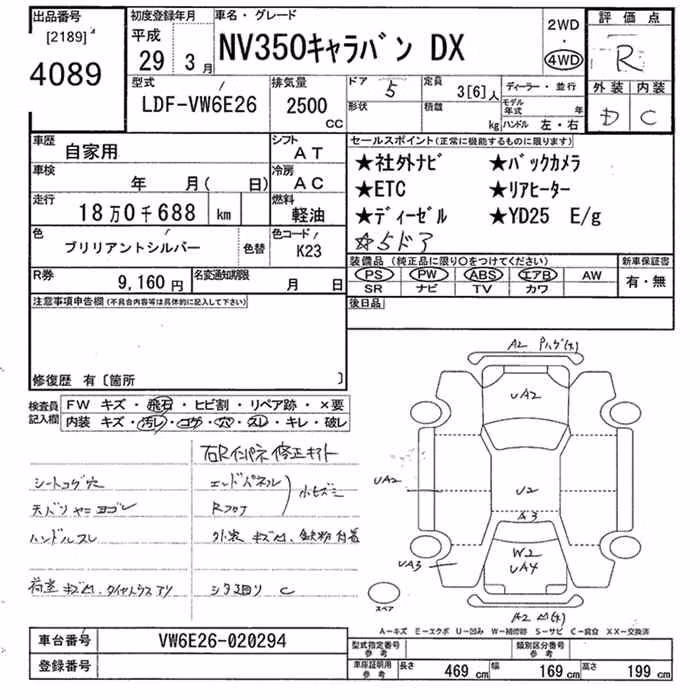 出品番号
[2189]
4089
初度登録年月
平成
29 3月
車名・グレード
NV350キャラバン DX
2WD
・
4WD
評価点
R
外装 内装
D C
型式
LDF-VW6E26
排気量
2500 CC
ドア 5
形状
定員 3[6]人
積載 kg
ディーラー・並行
モデル年式 年
ハンドル 左・右
車歴 自家用
シフト AT
車検 年 月( 日)
冷房 AC
走行 18万0千688 km
燃料 軽油
色 ブリリアントシルバー
色替
色コード K23
R券 9,160円
名変通知期限 月 日
セールスポイント(正常に機能するものに限ります)
★社外ナビ ★バックカメラ
★ETC ★リアヒーター
★ディーゼル ★YD25 E/g
☆5ドア
装備品 (純正品に限り○をつけてください)
PS PW ABS エアB AW
SR ナビ TV カワ
新車保証書
有・無
後日品
注意事項申告欄(不具合内容等は具体的に記入して下さい)
修復歴 有〔箇所 〕
検査員記入欄
FW キズ・飛石・ヒビ割・リペア跡・×要
内装 キズ・汚レ・コゲ・穴・スレ・キレ・破レ
右Rインパネ修正キアト
シートコゲ穴
エンドパネル
天バリ ヤニ ヨゴレ
Rフロア
小ヒズミ
ハンドルスレ
外装 キズ凹、鉄粉付着
荷室 キズ凹、タイヤハウスアリ
シタ回り C
A2
UA2
UA2
U2
A3
W2
UA4
UA3
A2 凹(大)
スペア
A-キズ E-エクボ U-凹み W-補修跡 S-サビ C-腐食 XX-交換済
車台番号 VW6E26-020294
登録番号
型式指定番号 参考
類別区分番号 参考
車庫証明用 参考
長さ 469 cm 幅 169 cm 高さ 199 cm